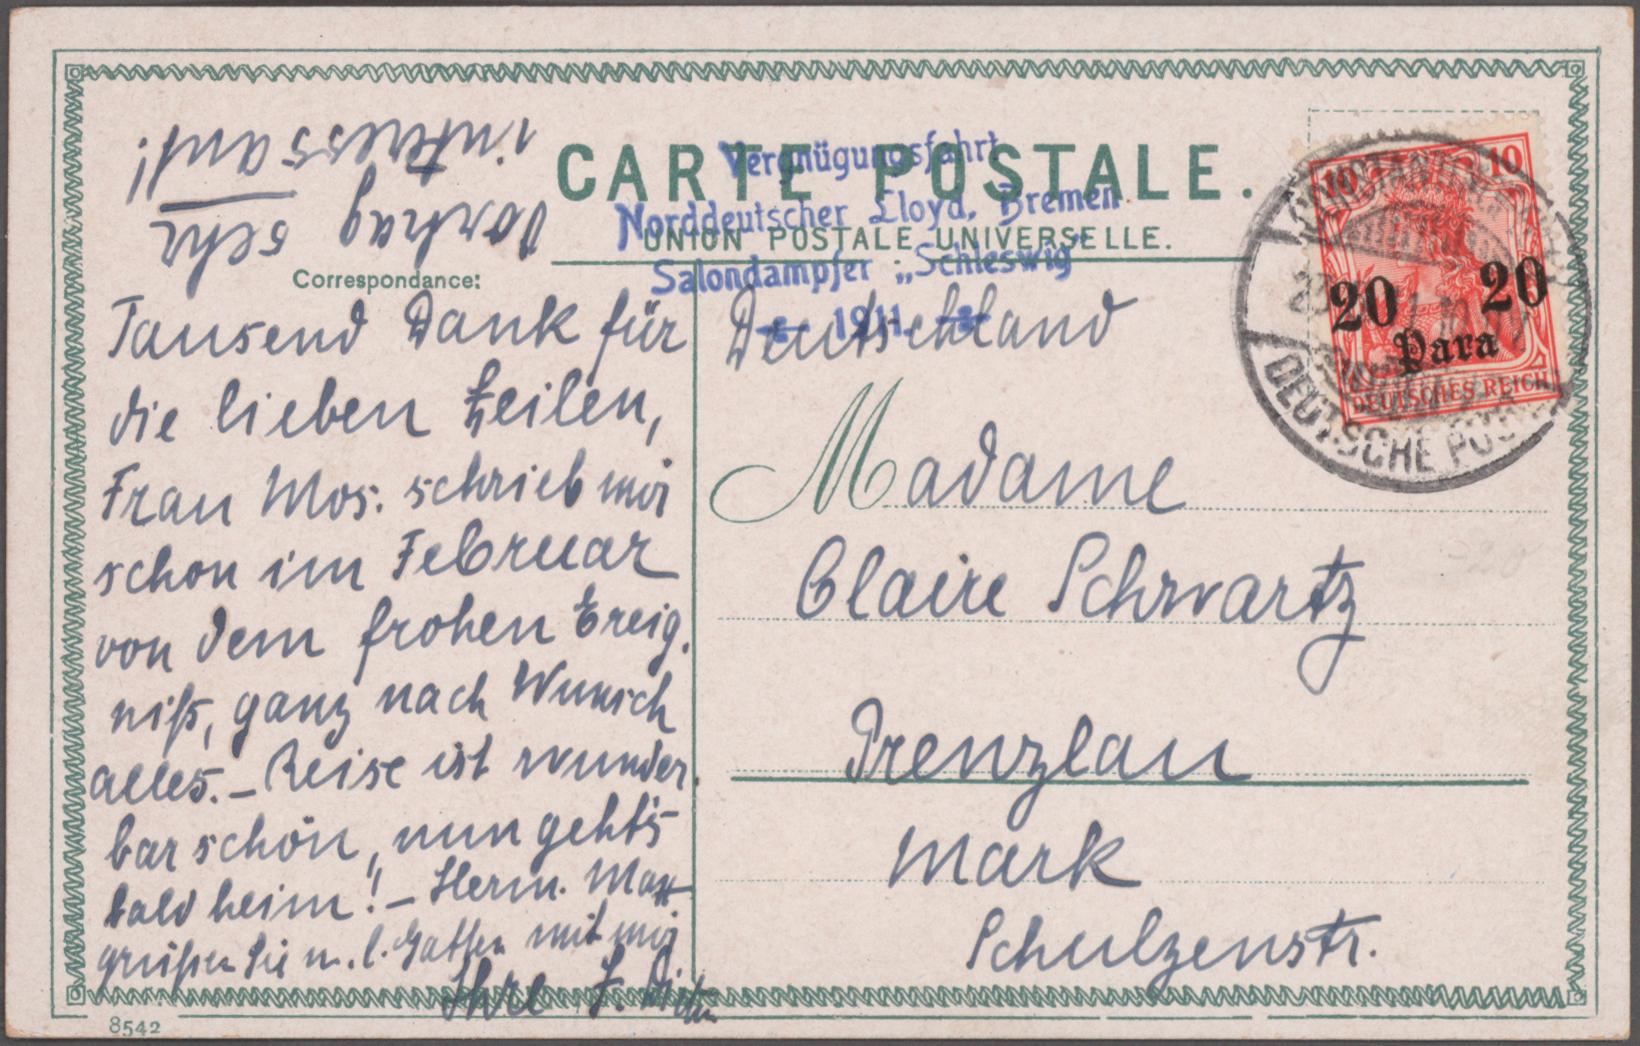 CARTE POSTALE.
UNION POSTALE UNIVERSELLE.
Vergnügungsfahrt
Norddeutscher Lloyd, Bremen
Salondampfer „Schleswig"
1911
Correspondance:
Tausend Dank für
die lieben Zeilen,
Frau Mos. schrieb mir
schon im Februar
von dem frohen Ereig.
niß, ganz nach Wunsch
alles. – Reise ist wunder.
bar schön, nun geht's
bald heim! – Herm. Max
grüßen Sie u. l. Gatten mit mir
Ihre F.
Vortrag sehr
interessant!
Deutschland
Madame
Claire Schwartz
Prenzlau
Mark
Schulzenstr.
10 10
20 20
Para
DEUTSCHES REICH
DEUTSCHE POST
8542